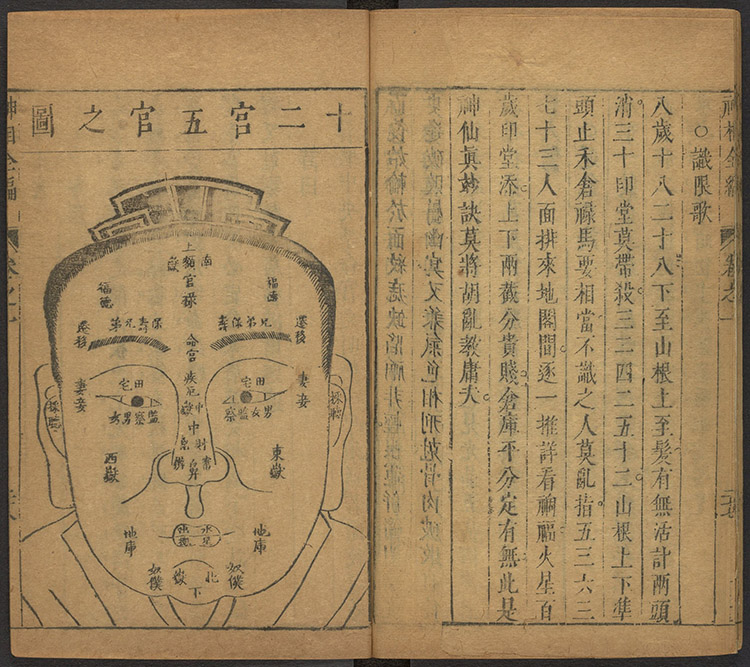 ○識限歌
八歲十八二十八下至山根上至髮有無活計兩頭
消三十印堂莫帶殺三三四二五十二山根上下準
頭止禾倉祿馬要相當不識之人莫亂指五三六三
七十三人面排來地閣間逐一推詳看禍福火星百
歲印堂添上下兩截分貴賤倉庫平分定有無此是
神仙眞妙訣莫將胡亂教庸夫
十二宮五官之圖
上額
南嶽
官祿
福德
福德
遷移
遷移
兄弟
保壽
保壽
兄弟
命宮
疾厄
田宅
田宅
男女
監察
監察
男女
妻妾
妻妾
採聽
採聽
中嶽
中
財帛
東嶽
西嶽
水星
地庫
地庫
奴僕
奴僕
北嶽
下